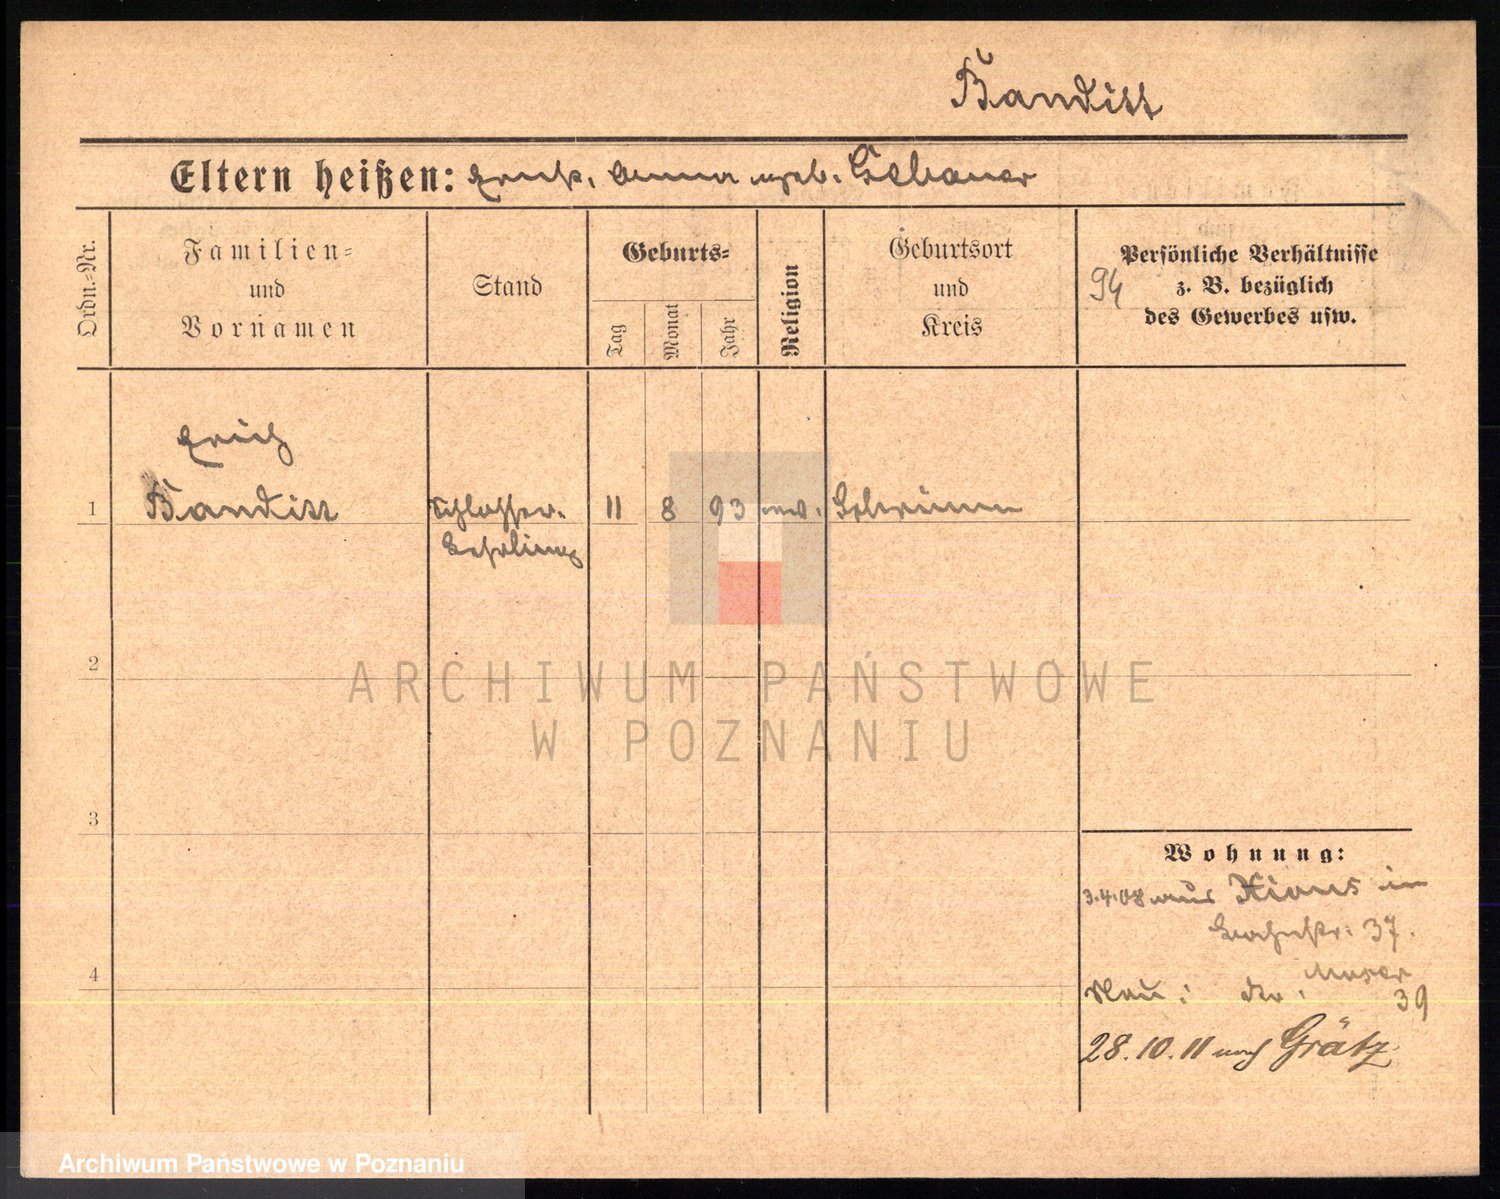 Banditt
Eltern heißen: Ernst, Anna geb.
Ordn.-Nr.
Familien-
und
Vornamen
Stand
Geburts-
Tag
Monat
Jahr
Religion
Geburtsort
und
Kreis
Persönliche Verhältnisse
z. B. bezüglich
des Gewerbes usw.
94
Erich
1 Banditt Schlosser- 11 8 93 ev. Schrimm
Lehrling
2
ARCHIWUM PAŃSTWOWE
W POZNANIU
3
Wohnung:
3.4.08 aus Xions in
37.
4
Neu: dto. 39
28.10.11 nach Grätz
Archiwum Państwowe w Poznaniu